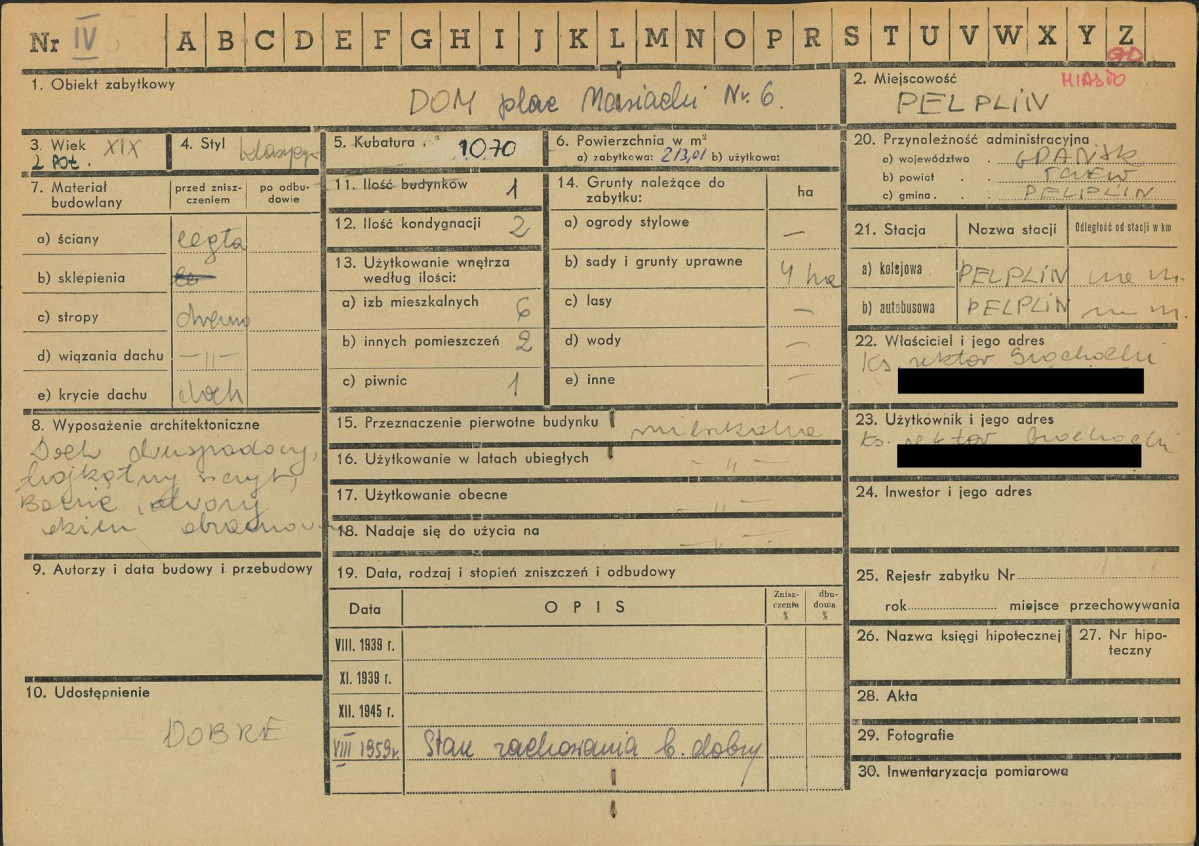 Nr IV A B C D E F G H I J K L M N O P R S T U V W X Y Z
1. Obiekt zabytkowy
DOM plac Mariacki Nr. 6.
2. Miejscowość MIASTO
PELPLIN
3. Wiek XIX
2 poł.
4. Styl klasycyz
5. Kubatura 1070
6. Powierzchnia w m²
a) zabytkowa: 213,01 b) użytkowa:
20. Przynależność administracyjna
a) województwo GDAŃSK
b) powiat TCZEW
c) gmina PELPLIN
7. Materiał budowlany
przed zniszczeniem
po odbudowie
a) ściany cegła
b) sklepienia
c) stropy drewno
d) wiązania dachu —"—
e) krycie dachu dach
11. Ilość budynków 1
12. Ilość kondygnacji 2
13. Użytkowanie wnętrza
według ilości:
a) izb mieszkalnych 6
b) innych pomieszczeń 2
c) piwnic 1
14. Grunty należące do
zabytku:
ha
a) ogrody stylowe —
b) sady i grunty uprawne 4 ha
c) lasy —
d) wody —
e) inne —
21. Stacja Nazwa stacji Odległość od stacji w km
a) kolejowa PELPLIN na m.
b) autobusowa PELPLIN na m.
22. Właściciel i jego adres
Ks. rektor Grochocki
23. Użytkownik i jego adres
Ks. rektor Grochocki
8. Wyposażenie architektoniczne
Dach dwuspadowy,
trójkątny szczyt,
Boczne otwory
okien obramow
15. Przeznaczenie pierwotne budynku mieszkalne
16. Użytkowanie w latach ubiegłych —"—
17. Użytkowanie obecne —"—
18. Nadaje się do użycia na —"—
24. Inwestor i jego adres
9. Autorzy i data budowy i przebudowy
19. Data, rodzaj i stopień zniszczeń i odbudowy
Data OPIS Zniszczenia % dbudowa %
VIII. 1939 r.
XI. 1939 r.
XII. 1945 r.
VIII 1959 r. Stan zachowania b. dobry
25. Rejestr zabytku Nr
rok miejsce przechowywania
26. Nazwa księgi hipotecznej
27. Nr hipoteczny
10. Udostępnienie
DOBRE
28. Akta
29. Fotografie
30. Inwentaryzacja pomiarowa